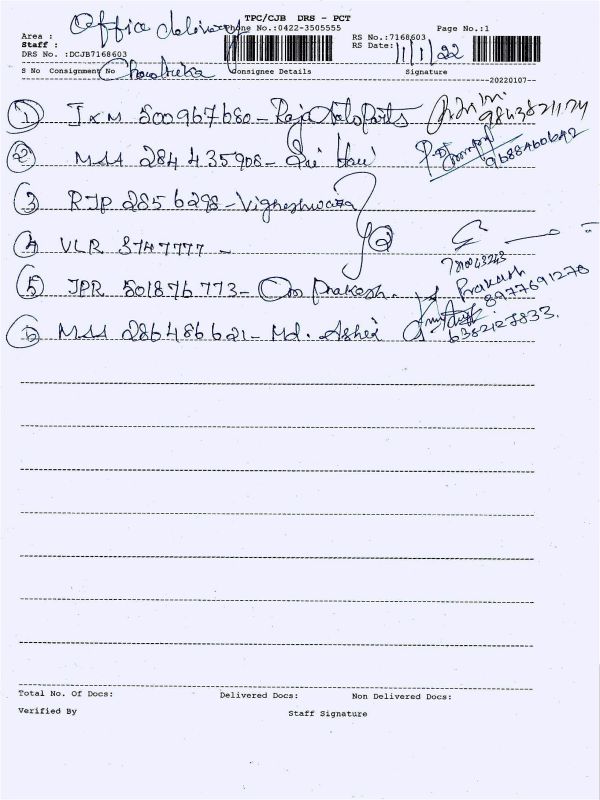 TPC/CJB DRS - PCT
Office delivery
Area : Phone No.:0422-3505555 RS No.:7168603 Page No.:1
Staff : RS Date: 11/1/22
DRS No. :DCJB7168603
S No Consignment No Consignee Details Signature
--20220107--
① IXM 500967680 - Raja Autoparts 9843821174
② MAA 284435908 - Sai Hari 9688460642
③ RJP 2856298 - Vigneshwara
④ VLR 3747777 -
⑤ JPR 501876773 - Om prakash. Prakash 8977691278
⑥ MAA 286486621 - Md. Asher
Total No. Of Docs: Delivered Docs: Non Delivered Docs:
Verified By Staff Signature